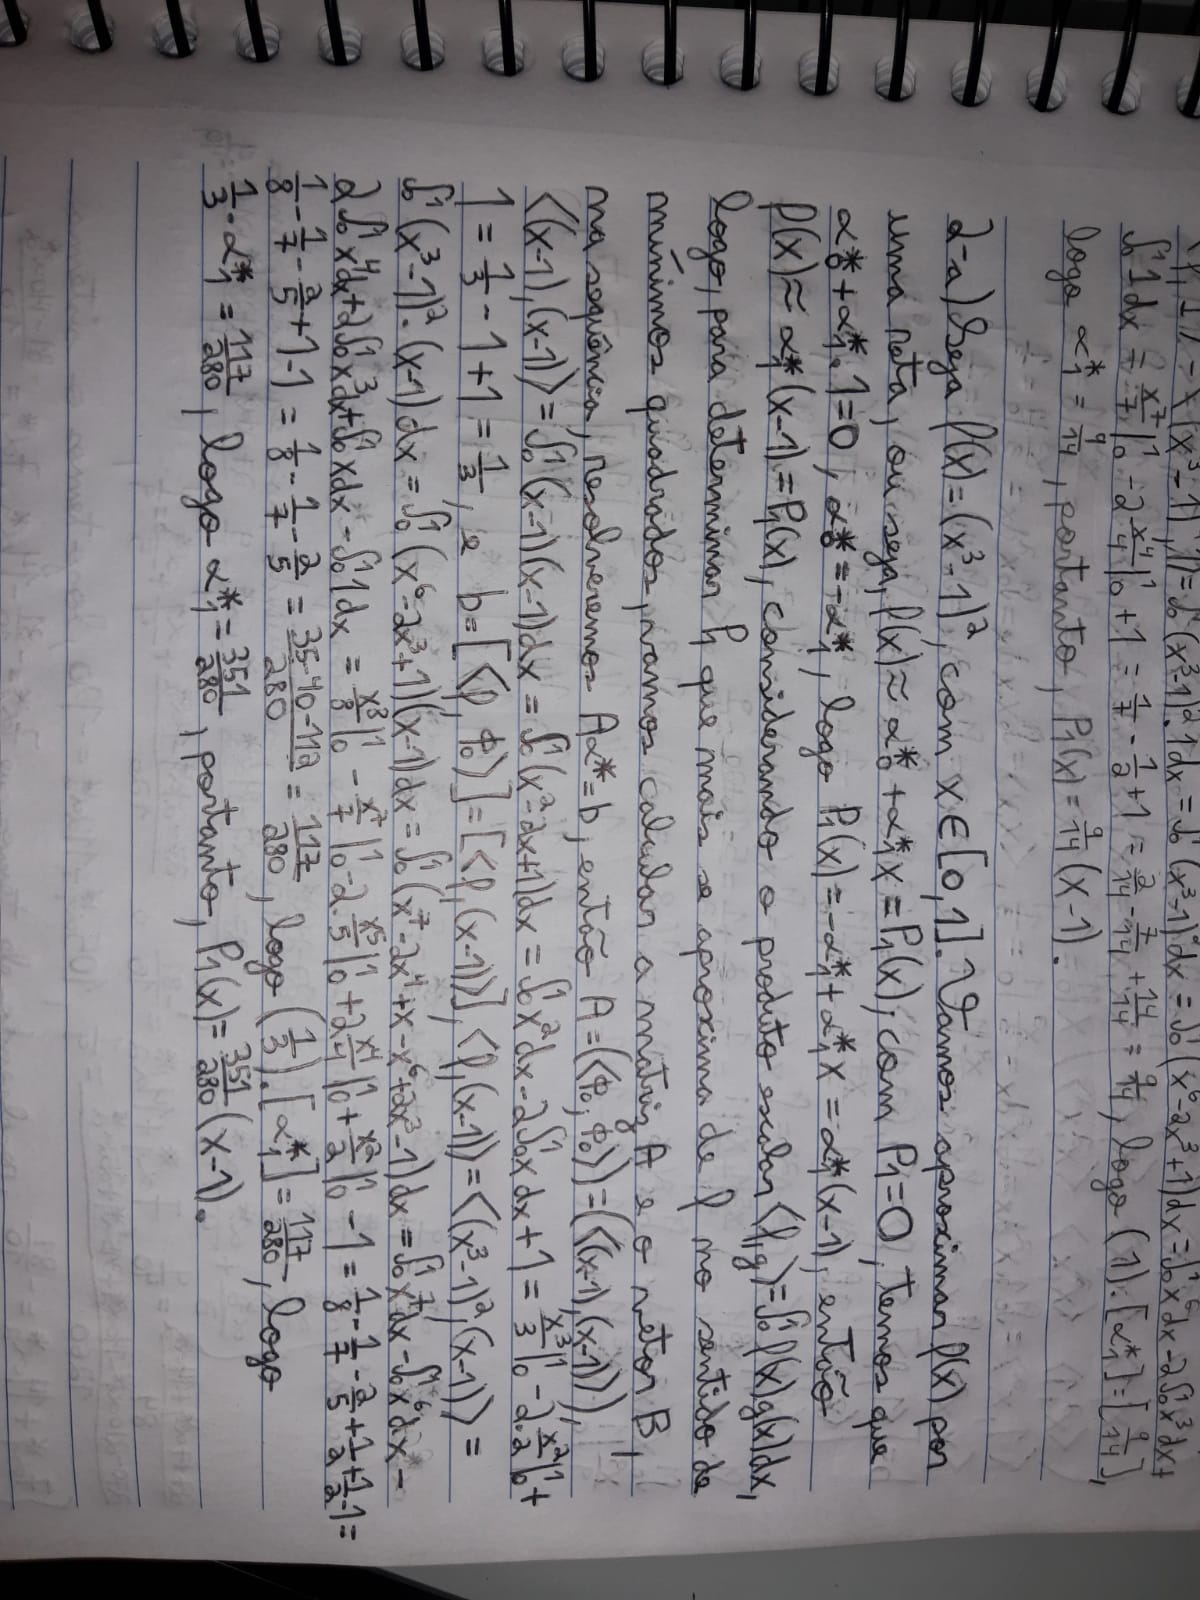 ∫₀¹ (x³-1)²·1dx = ∫₀¹ (x³-1)²dx = ∫₀¹ (x⁶-2x³+1)dx = ∫₀¹ x⁶dx - 2∫₀¹ x³dx +
∫₀¹ 1dx = x⁷/7 |₀¹ - 2 x⁴/4 |₀¹ + 1 = 1/7 - 1/2 + 1 = 2/14 - 7/14 + 14/14 = 9/14, logo (1)·[α₁*] = [9/14],
logo α₁* = 9/14, portanto, P₁(x) = 9/14 (x-1).
2-a) Seja f(x) = (x³-1)², com x ∈ [0,1]. Vamos aproximar f(x) por
uma reta, ou seja, f(x) ≈ α₀* + α₁*x = P₁(x), com P₁=0, temos que
α₀* + α₁*·1=0, α₀* = -α₁*, logo P₁(x) = -α₁* + α₁*x = α₁*(x-1), então
f(x) ≈ α₁*(x-1) = P₁(x), considerando o produto escalar <f,g> = ∫₀¹ f(x)g(x)dx,
logo, para determinar P₁ que mais se aproxima de f no sentido de
mínimos quadrados, vamos calcular a matriz A e o vetor B,
na sequência, resolveremos Aα*=b, então A = (<φ₀,φ₀>) = (<(x-1),(x-1)>),
<(x-1),(x-1)> = ∫₀¹ (x-1)(x-1)dx = ∫₀¹ (x²-2x+1)dx = ∫₀¹ x²dx - 2∫₀¹ x dx + 1 = x³/3 |₀¹ - 2·x²/2 |₀¹ +
1 = 1/3 - 1 + 1 = 1/3, e b = [<f,φ₀>] = [<f,(x-1)>], <f,(x-1)> = <(x³-1)²,(x-1)> =
∫₀¹ (x³-1)²·(x-1)dx = ∫₀¹ (x⁶-2x³+1)(x-1)dx = ∫₀¹ (x⁷-2x⁴+x-x⁶+2x³-1)dx = ∫₀¹ x⁷dx - ∫₀¹ x⁶dx -
2∫₀¹ x⁴dx + 2∫₀¹ x³dx + ∫₀¹ xdx - ∫₀¹ 1dx = x⁸/8 |₀¹ - x⁷/7 |₀¹ - 2·x⁵/5 |₀¹ + 2x⁴/4 |₀¹ + x²/2 |₀¹ - 1 = 1/8 - 1/7 - 2/5 + 1/2 + 1/2 - 1 =
1/8 - 1/7 - 2/5 + 1 - 1 = 1/8 - 1/7 - 2/5 = 35-40-112/280 = 117/280, logo (1/3)·[α₁*] = 117/280, logo
1/3 · α₁* = 117/280, logo α₁* = 351/280, portanto, P₁(x) = 351/280 (x-1).